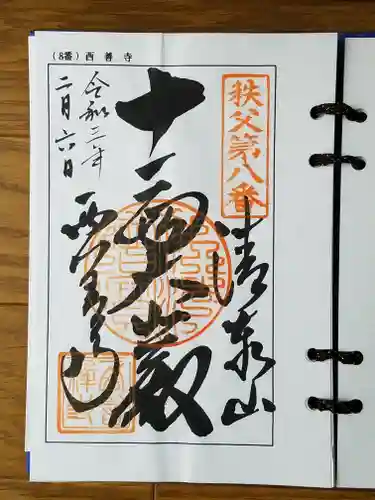 (8番) 西善寺
秩父第八番
清泰山
十一面大悲殿
西善寺
令和三年
二月六日